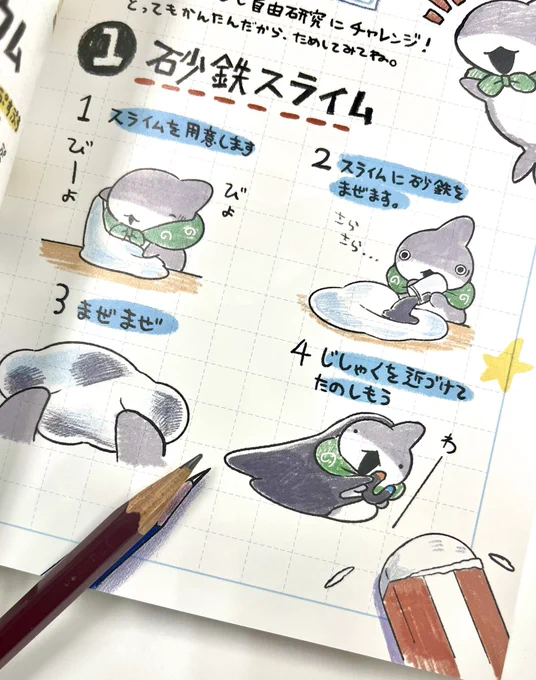 自由研究にチャレンジ!
とってもかんたんだから、ためしてみてね。
1 砂鉄スライム
1 スライムを用意します
びーよ
びよ
2 スライムに砂鉄を
まぜます。
さら
さら…
3 まぜまぜ
4 じしゃくを近づけて
たのしもう
わー